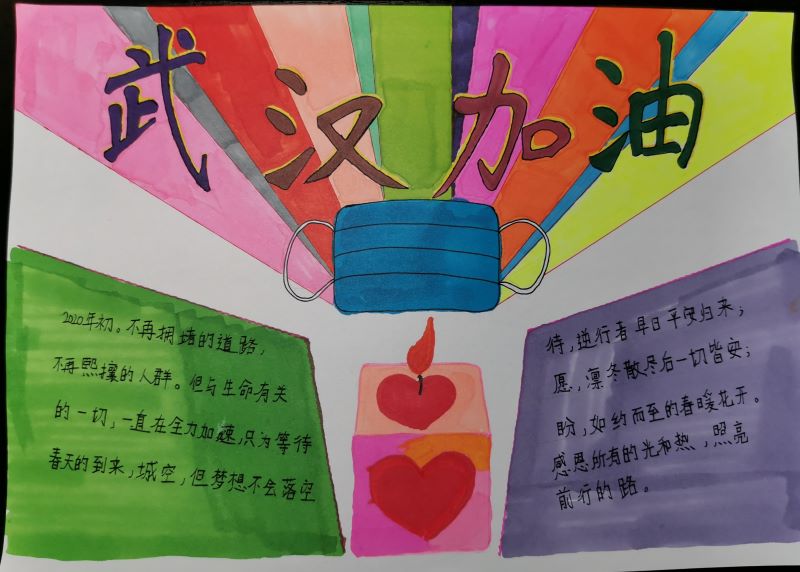 武汉加油
2020年初。不再拥堵的道路，
不再熙攘的人群。但与生命有关
的一切，一直在全力加速，只为等待
春天的到来，城空，但梦想不会落空
待，逆行者早日平安归来；
愿，凛冬散尽后一切皆安；
盼，如约而至的春暖花开。
感恩所有的光和热，照亮
前行的路。